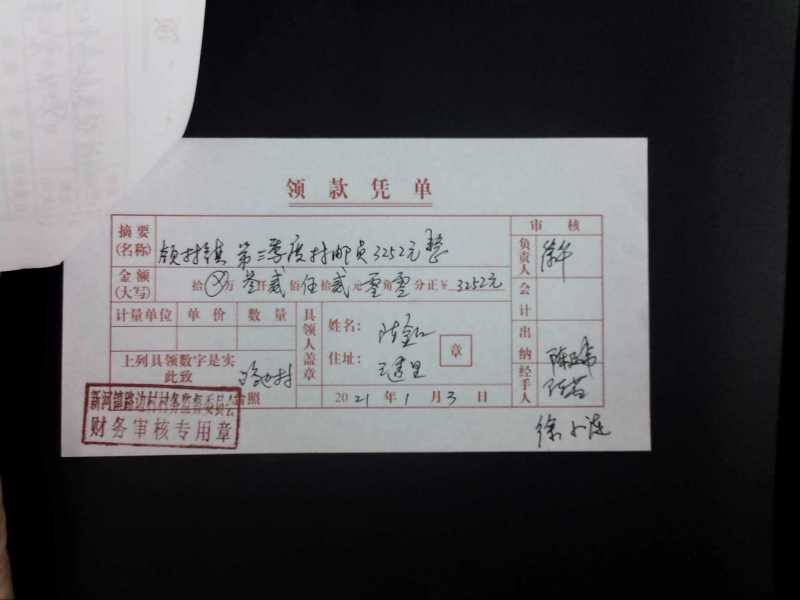 领款凭单
摘要 领村镇第三季度村邮员3252元整 审核
(名称) 负责人
金额 拾ⓧ万叁仟贰佰伍拾贰元零角零分正￥3252元
(大写) 会计
计量单位 单价 数量 具领人盖章 姓名: 出纳
上列具领数字是实 住址: 章 陈
此致 路边村 经手人
台照 2021年1月3日
新河镇路边村村务监督委员会
财务审核专用章
徐